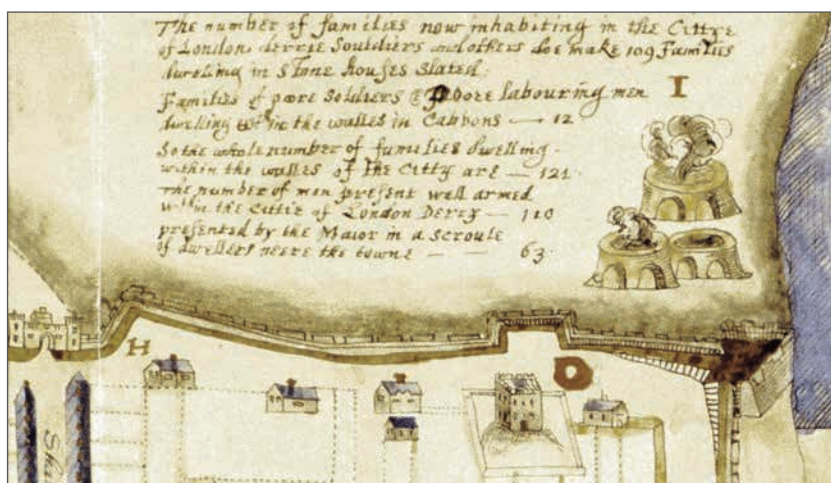 The number of families now inhabiting in the Cittye
of London derrie Souldiers and others doe make 109 Families
dweling in Stone houses Slated
Families of poore Soldiers & poore labouring men
dwelling wthin the walles in Cabbons — 12
So the whole number of families dwelling
within the walles of the Citty are — 121
The number of men present well armed
wthin the Cittie of London Dery — 110
presented by the Maior in a scroule
of dwellers neere the towne — — 63
I
H
O
Sha